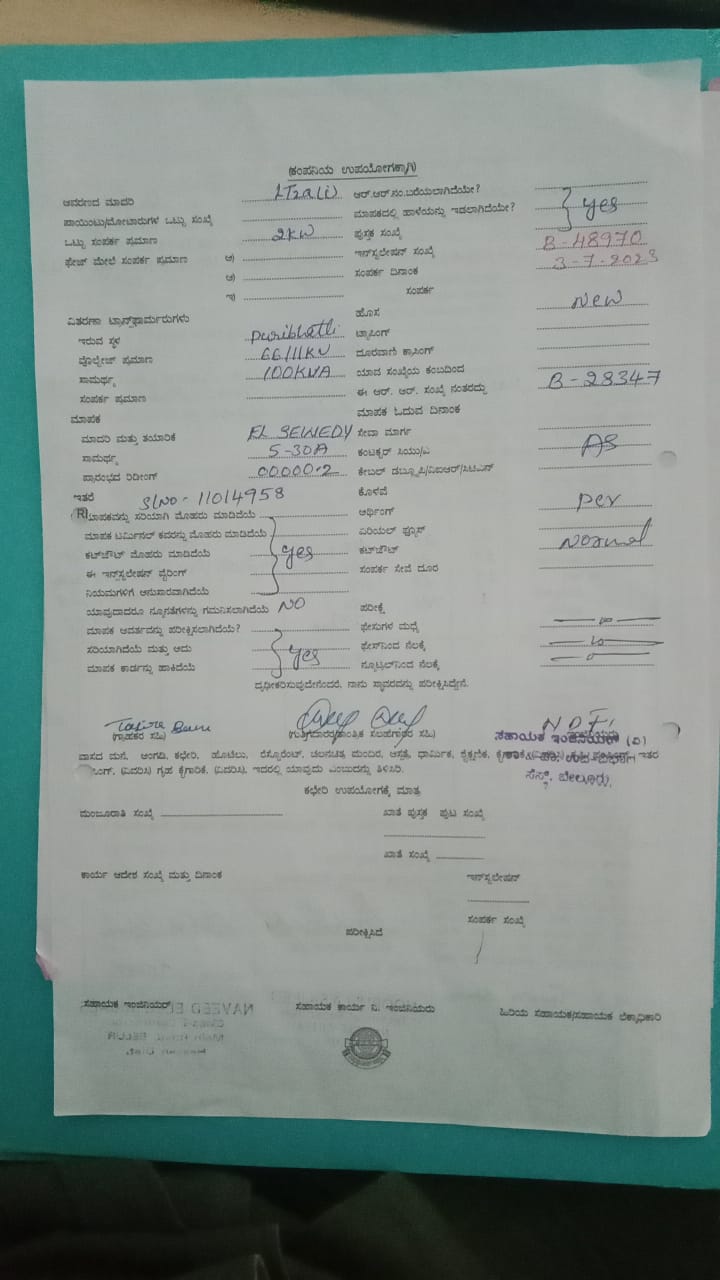 (ಕಂಪನಿಯ ಉಪಯೋಗಕ್ಕಾಗಿ)
ಆವರಣದ ಮಾದರಿ LT2a(i) ಆರ್.ಆರ್.ನಂ.ಬರೆಯಲಾಗಿದೆಯೇ?
ಪಾಯಿಂಟು/ಮೋಟಾರುಗಳ ಒಟ್ಟು ಸಂಖ್ಯೆ ಮಾಪಕದಲ್ಲಿ ಹಾಳೆಯನ್ನು ಇಡಲಾಗಿದೆಯೇ? yes
ಒಟ್ಟು ಸಂಪರ್ಕ ಪ್ರಮಾಣ 2KW ಪುಸ್ತಕ ಸಂಖ್ಯೆ
ಫೇಜ್ ಮೇಲೆ ಸಂಪರ್ಕ ಪ್ರಮಾಣ ಅ) ಇನ್‌ಸ್ಟಲೇಷನ್ ಸಂಖ್ಯೆ B-48970
ಆ) ಸಂಪರ್ಕ ದಿನಾಂಕ 3-7-2023
ಇ) ಸಂಪರ್ಕ
ವಿತರಣಾ ಟ್ರಾನ್ಸ್‌ಫಾರ್ಮರುಗಳು ಹೊಸ New
ಇರುವ ಸ್ಥಳ Puribhatti ಟ್ಯಾಸಿಂಗ್
ವೊಲ್ಟೇಜ್ ಪ್ರಮಾಣ 66/11KV ದೂರವಾಣಿ ಕ್ರಾಸಿಂಗ್
ಸಾಮರ್ಥ್ಯ 100KVA ಯಾವ ಸಂಖ್ಯೆಯ ಕಂಬದಿಂದ
ಸಂಪರ್ಕ ಪ್ರಮಾಣ ಈ ಆರ್. ಆರ್. ಸಂಖ್ಯೆ ನಂತರದ್ದು B-28347
ಮಾಪಕ ಮಾಪಕ ಓದುವ ದಿನಾಂಕ
ಮಾದರಿ ಮತ್ತು ತಯಾರಿಕೆ EL SEWEDY ಸೇವಾ ಮಾರ್ಗ
ಸಾಮರ್ಥ್ಯ 5-30A ಕಂಟಕ್ಟರ್ ಸಿಯು/ಎ AS
ಪ್ರಾರಂಭದ ರಿಡೀಂಗ್ 00000.2 ಕೇಬಲ್ ಡಬ್ಲ್ಯೂಪಿ/ವಿಐಆರ್/ಸಿಟಿಎಸ್
ಇತರೆ S/NO-11014958 ಕೊಳವೆ
(R) ಮಾಪಕವನ್ನು ಸರಿಯಾಗಿ ಮೊಹರು ಮಾಡಿದೆಯೆ ಆರ್ಥಿಂಗ್ per
ಮಾಪಕ ಟರ್ಮಿನಲ್ ಕವರನ್ನು ಮೊಹರು ಮಾಡಿದೆಯೆ ಏರಿಯಲ್ ಫ್ಯೂಸ್
ಕಟ್‌ಔಟ್ ಮೊಹರು ಮಾಡಿದೆಯೆ yes ಕಟ್‌ಔಟ್ Normal
ಈ ಇನ್‌ಸ್ಟಲೇಷನ್ ವೈರಿಂಗ್ ಸಂಪರ್ಕ ಸೇವೆ ದೂರ
ನಿಯಮಗಳಿಗೆ ಅನುಸಾರವಾಗಿದೆಯೆ
ಯಾವುದಾದರೂ ನ್ಯೂನತೆಗಳನ್ನು ಗಮನಿಸಲಾಗಿದೆಯೆ NO ಪರೀಕ್ಷೆ
ಮಾಪಕ ಆವರ್ತವನ್ನು ಪರೀಕ್ಷಿಸಲಾಗಿದೆಯೆ? ಫೇಸುಗಳ ಮಧ್ಯೆ
ಸರಿಯಾಗಿದೆಯೆ ಮತ್ತು ಅದು yes ಫೇಸ್‌ನಿಂದ ನೆಲಕ್ಕೆ
ಮಾಪಕ ಕಾರ್ಡನ್ನು ಹಾಕಿದೆಯೆ ನ್ಯೂಟ್ರಲ್‌ನಿಂದ ನೆಲಕ್ಕೆ
ದೃಢೀಕರಿಸುವುದೇನೆಂದರೆ, ನಾನು ಸ್ಥಾವರವನ್ನು ಪರೀಕ್ಷಿಸಿದ್ದೇನೆ.
(ಗ್ರಾಹಕರ ಸಹಿ) (ಗುತ್ತಿಗೆದಾರರ/ತಾಂತ್ರಿಕ ಸಲಹೆಗಾರರ ಸಹಿ)
ಸಹಾಯಕ ಇಂಜಿನಿಯರ್ (ವಿ)
ವಾಸದ ಮನೆ, ಅಂಗಡಿ, ಕಛೇರಿ, ಹೋಟೆಲು, ರೆಸ್ಟೋರೆಂಟ್, ಚಲನಚಿತ್ರ ಮಂದಿರ, ಆಸ್ಪತ್ರೆ, ಧಾರ್ಮಿಕ, ಶೈಕ್ಷಣಿಕ, ಇತರ
(ವಿವರಿಸಿ) ಗೃಹ ಕೈಗಾರಿಕೆ, (ವಿವರಿಸಿ), ಇದರಲ್ಲಿ ಯಾವುದು ಎಂಬುದನ್ನು ತಿಳಿಸಿರಿ.
ಸೆಸ್ಕ್, ಬೇಲೂರು.
ಕಛೇರಿ ಉಪಯೋಗಕ್ಕೆ ಮಾತ್ರ
ಮಂಜೂರಾತಿ ಸಂಖ್ಯೆ ಖಾತೆ ಪುಸ್ತಕ ಪುಟ ಸಂಖ್ಯೆ
ಖಾತೆ ಸಂಖ್ಯೆ
ಕಾರ್ಯ ಆದೇಶ ಸಂಖ್ಯೆ ಮತ್ತು ದಿನಾಂಕ ಇನ್‌ಸ್ಟಲೇಷನ್
ಸಂಪರ್ಕ ಸಂಖ್ಯೆ
ಪರೀಕ್ಷಿಸಿದೆ
ಸಹಾಯಕ ಇಂಜಿನಿಯರ್ ಸಹಾಯಕ ಕಾರ್ಯ ನಿ. ಇಂಜಿನಿಯರು ಹಿರಿಯ ಸಹಾಯಕ/ಸಹಾಯಕ ಲೆಕ್ಕಾಧಿಕಾರಿ